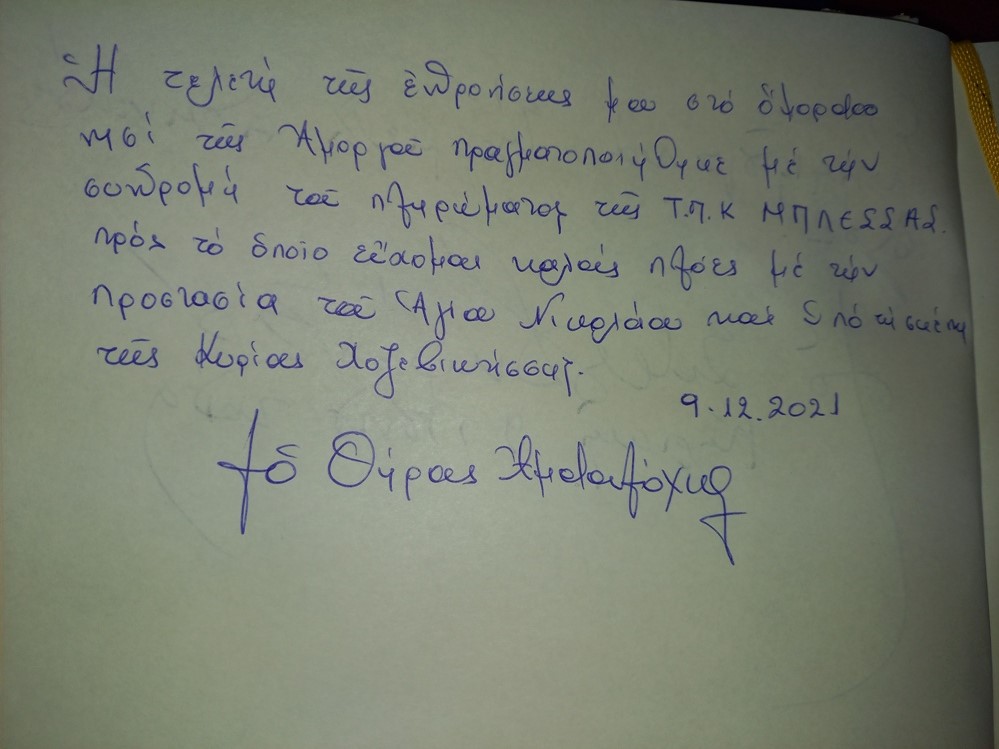 Ἡ τελετή τῆς ἐνθρονίσεώς μου στό ὄμορφο
νησί τῆς Ἀμοργοῦ πραγματοποιήθηκε μέ τήν
συνδρομή τοῦ πληρώματος τῆς Τ.Π.Κ ΜΠΛΕΣΣΑΣ.
πρός τό ὁποῖο εὔχομαι καλούς πλόες μέ τήν
προστασία τοῦ Ἁγίου Νικολάου καί ὑπό τή σκέπη
τῆς Κυρίας Χοζεβιωτίσσης.
9.12.2021
†ὁ Θήρας Ἀμφιλόχιος